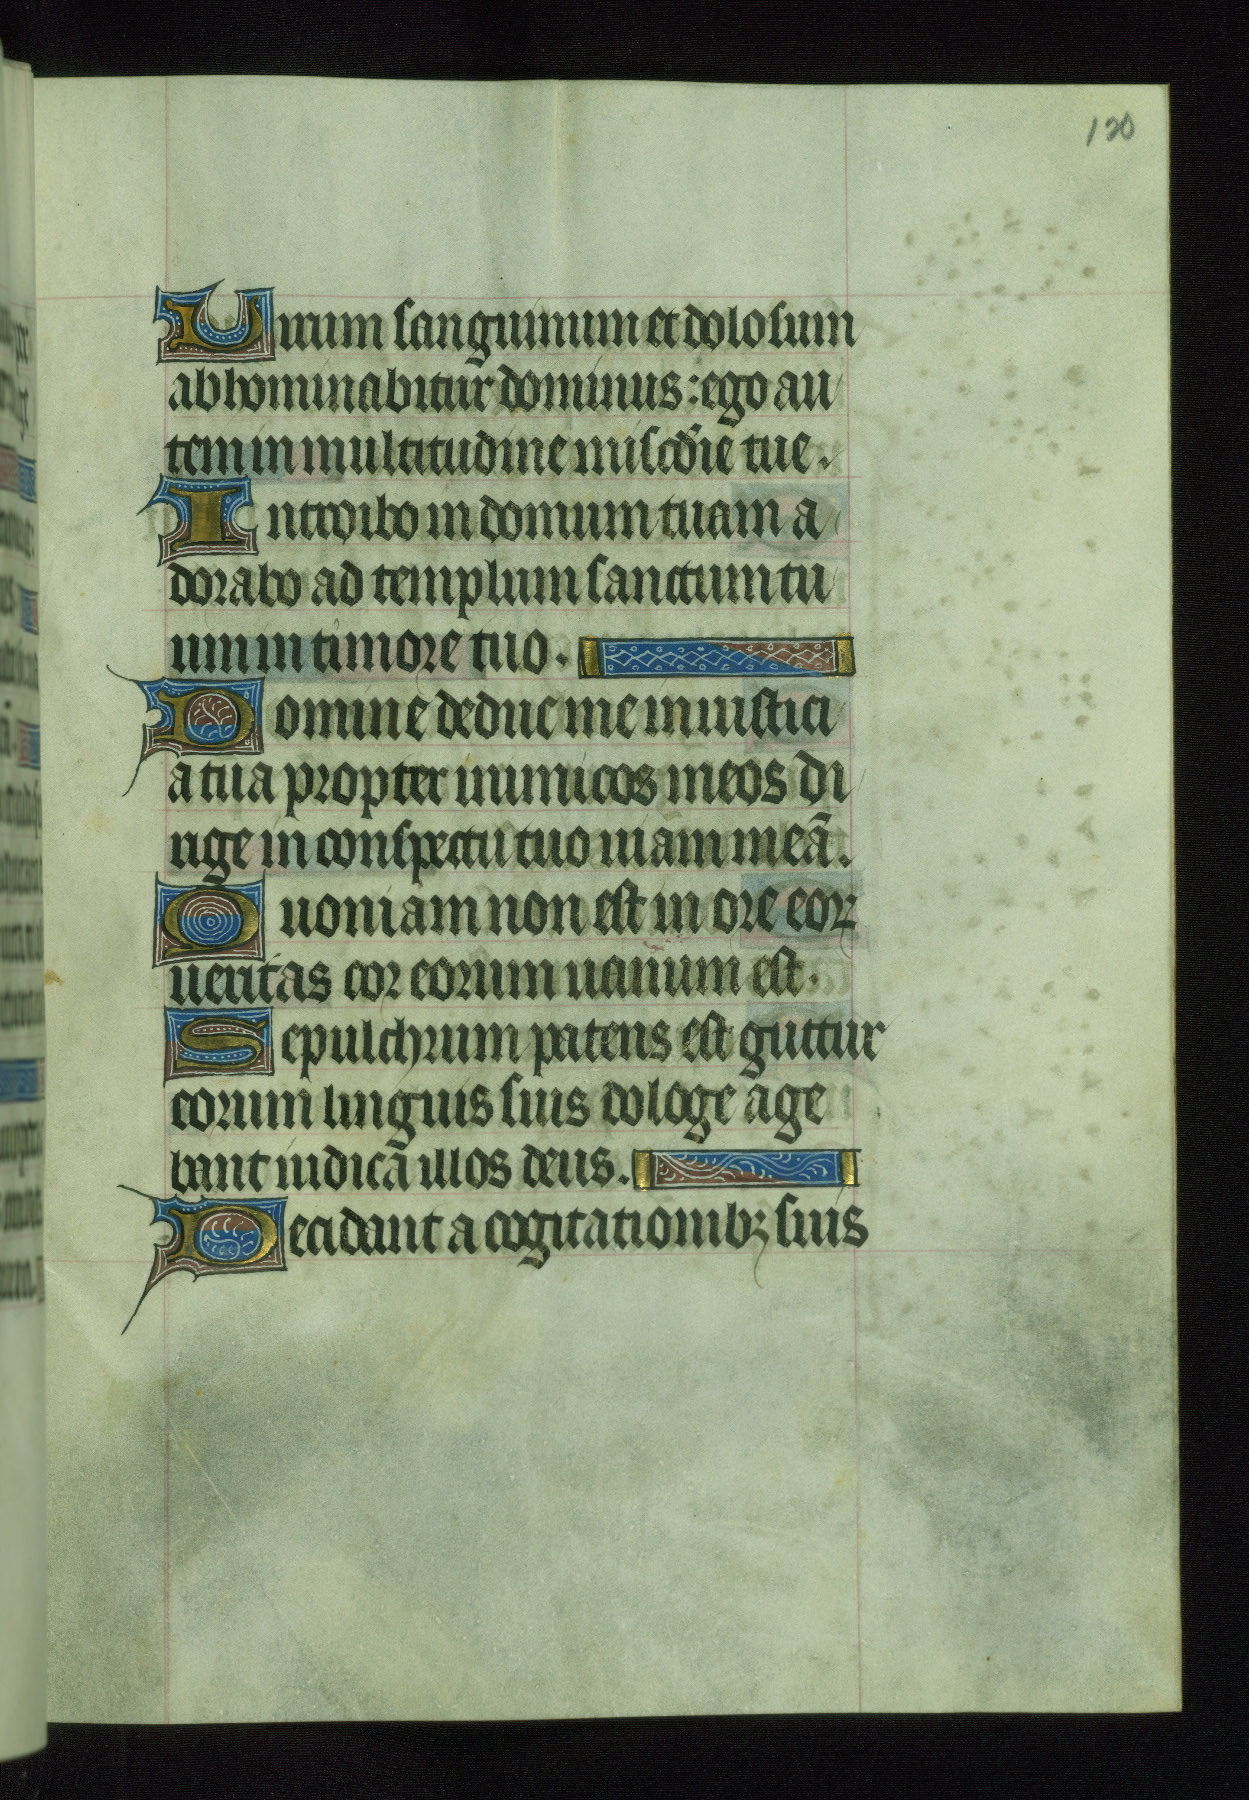 120
Uirum sanguinum et dolosum
abhominabitur dominus: ego au
tem in multitudine mis̄cdīe tue.
Introibo in domum tuam a
dorabo ad templum sanctum tu
um in timore tuo.
Domine deduc me in iustici
a tua propter inimicos meos di
rige in conspectu tuo uiam meā.
Quoniam non est in ore eoꝝ
ueritas cor eorum uanum est.
Sepulchrum patens est guttur
eorum linguis suis doloqe age
bant iudicā illos deus.
Decidant a cogitationibꝫ suis